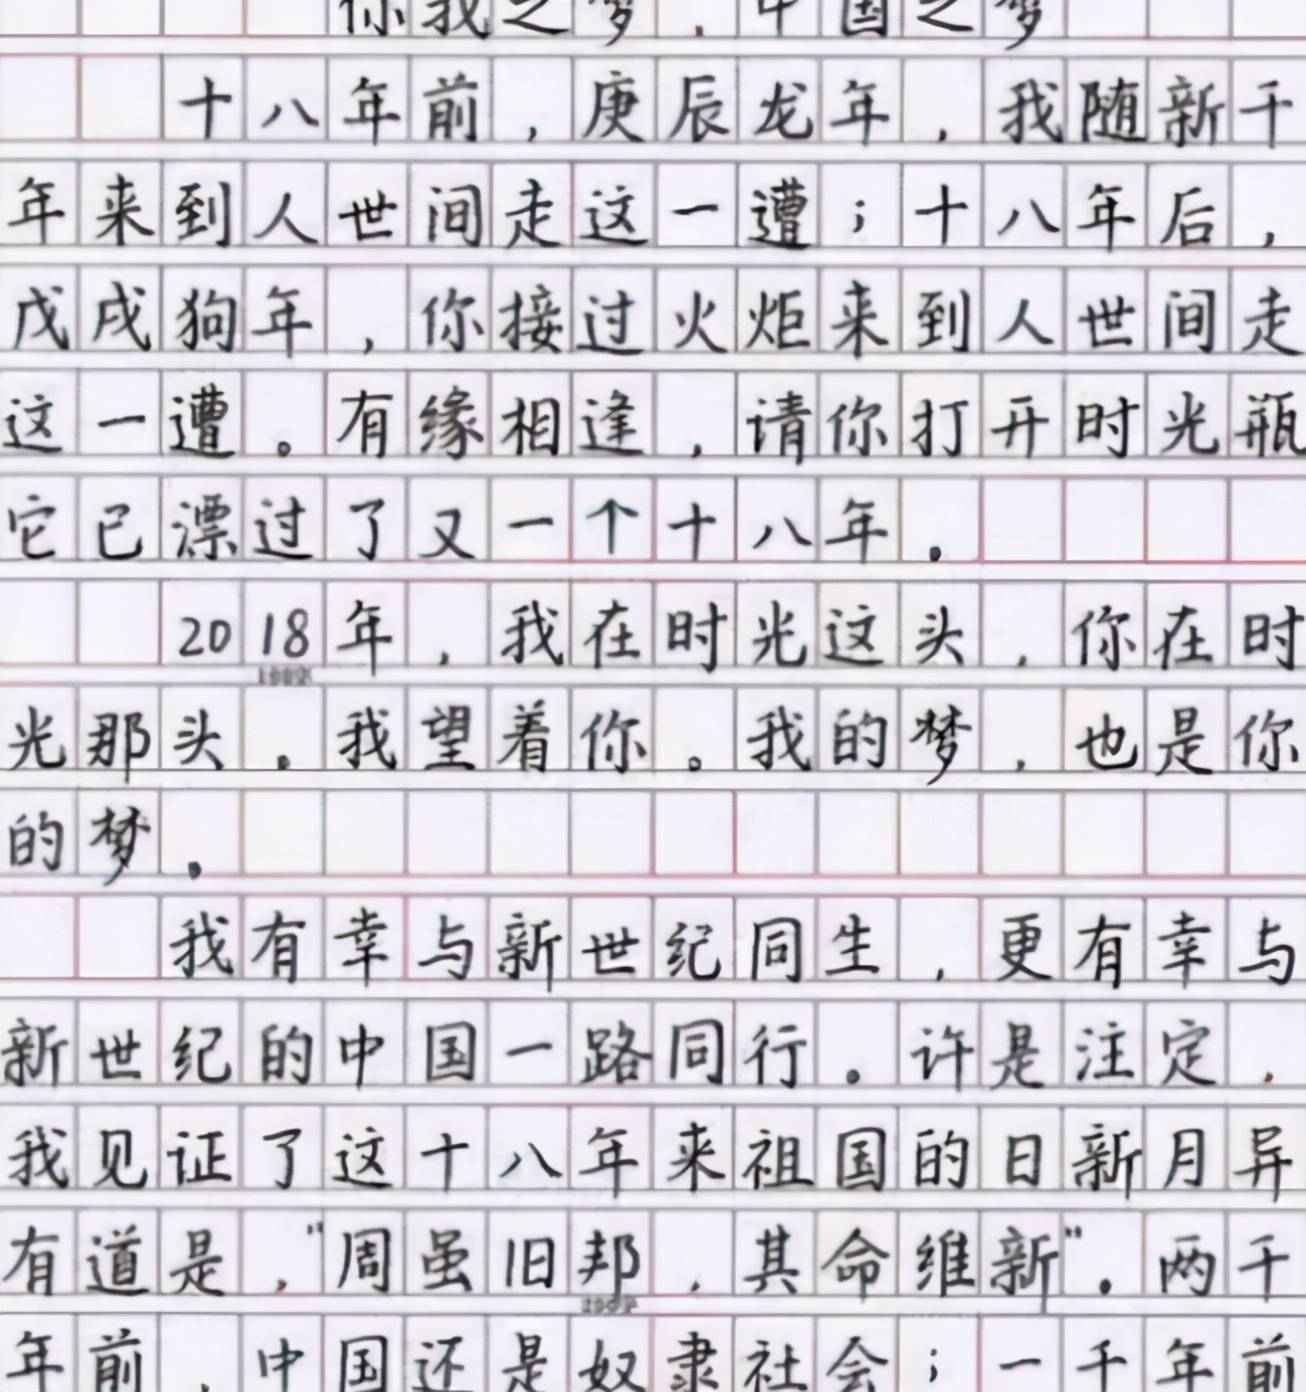 你我之梦,中国之梦
十八年前,庚辰龙年,我随新千
年来到人世间走这一遭;十八年后,
戊戌狗年,你接过火炬来到人世间走
这一遭。有缘相逢,请你打开时光瓶
它已漂过了又一个十八年.
2018年,我在时光这头,你在时
100字
光那头.我望着你。我的梦,也是你
的梦.
我有幸与新世纪同生,更有幸与
新世纪的中国一路同行.许是注定,
我见证了这十八年来祖国的日新月异
有道是,"周虽旧邦,其命维新".两千
200字
年前,中国还是奴隶社会;一千年前